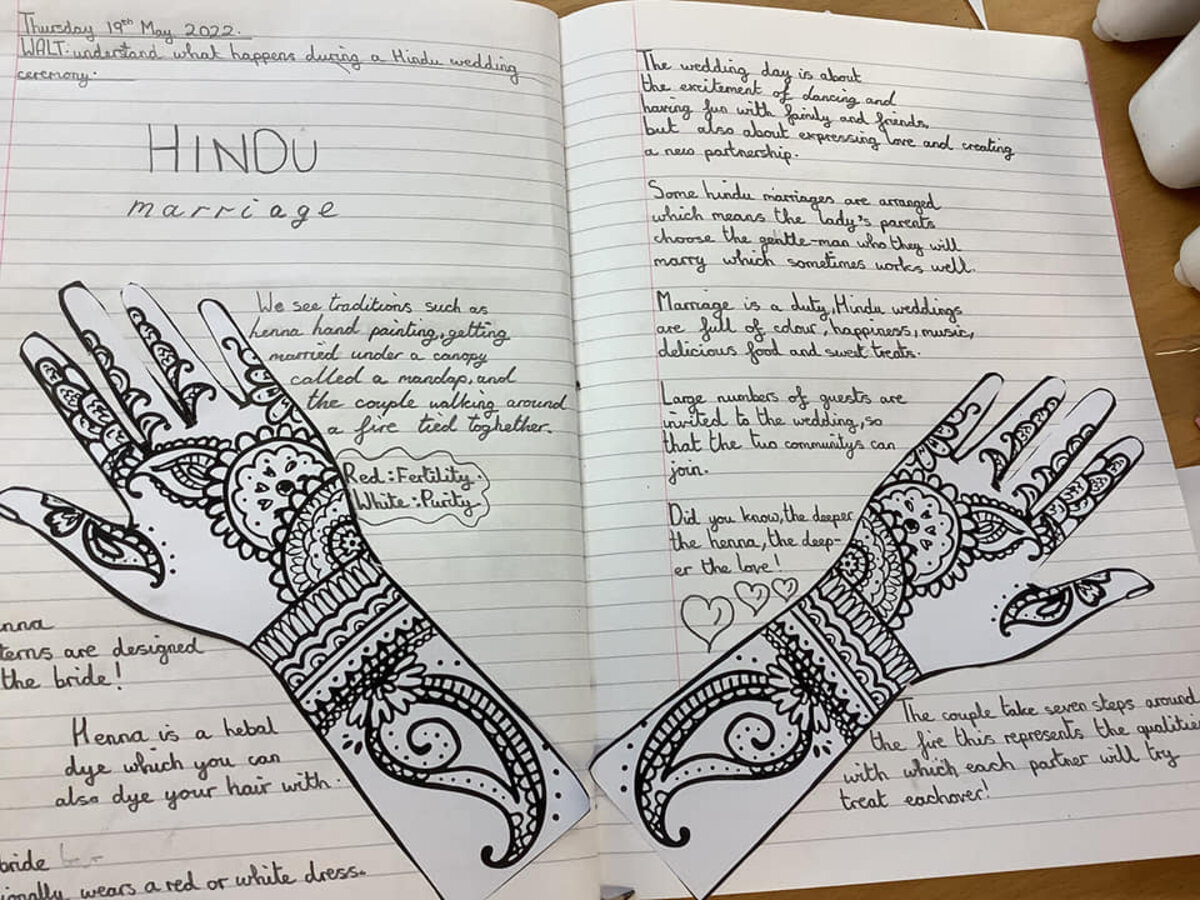 Thursday 19th May 2022.
WALT: understand what happens during a Hindu wedding
ceremony.
HINDU
marriage
We see traditions such as
henna hand painting, getting
married under a canopy
called a mandap, and
the couple walking around
a fire tied toghether.
Red: Fertility.
White: Purity.
terns are designed
the bride!
Henna is a hebal
dye which you can
also dye your hair with.
bride
ionally wears a red or white dress.
The wedding day is about
the excitement of dancing and
having fun with family and friends,
but also about expressing love and creating
a new partnership.
Some hindu marriages are arranged
which means the lady's parents
choose the gentle-man who they will
marry which sometimes works well.
Marriage is a duty, Hindu weddings
are full of colour, happiness, music,
delicious food and sweet treats.
Large numbers of guests are
invited to the wedding, so
that the two communitys can
join.
Did you know, the deeper
the henna, the deep-
er the love!
The couple take seven steps around
the fire this represents the qualities
with which each partner will try
treat eachover!